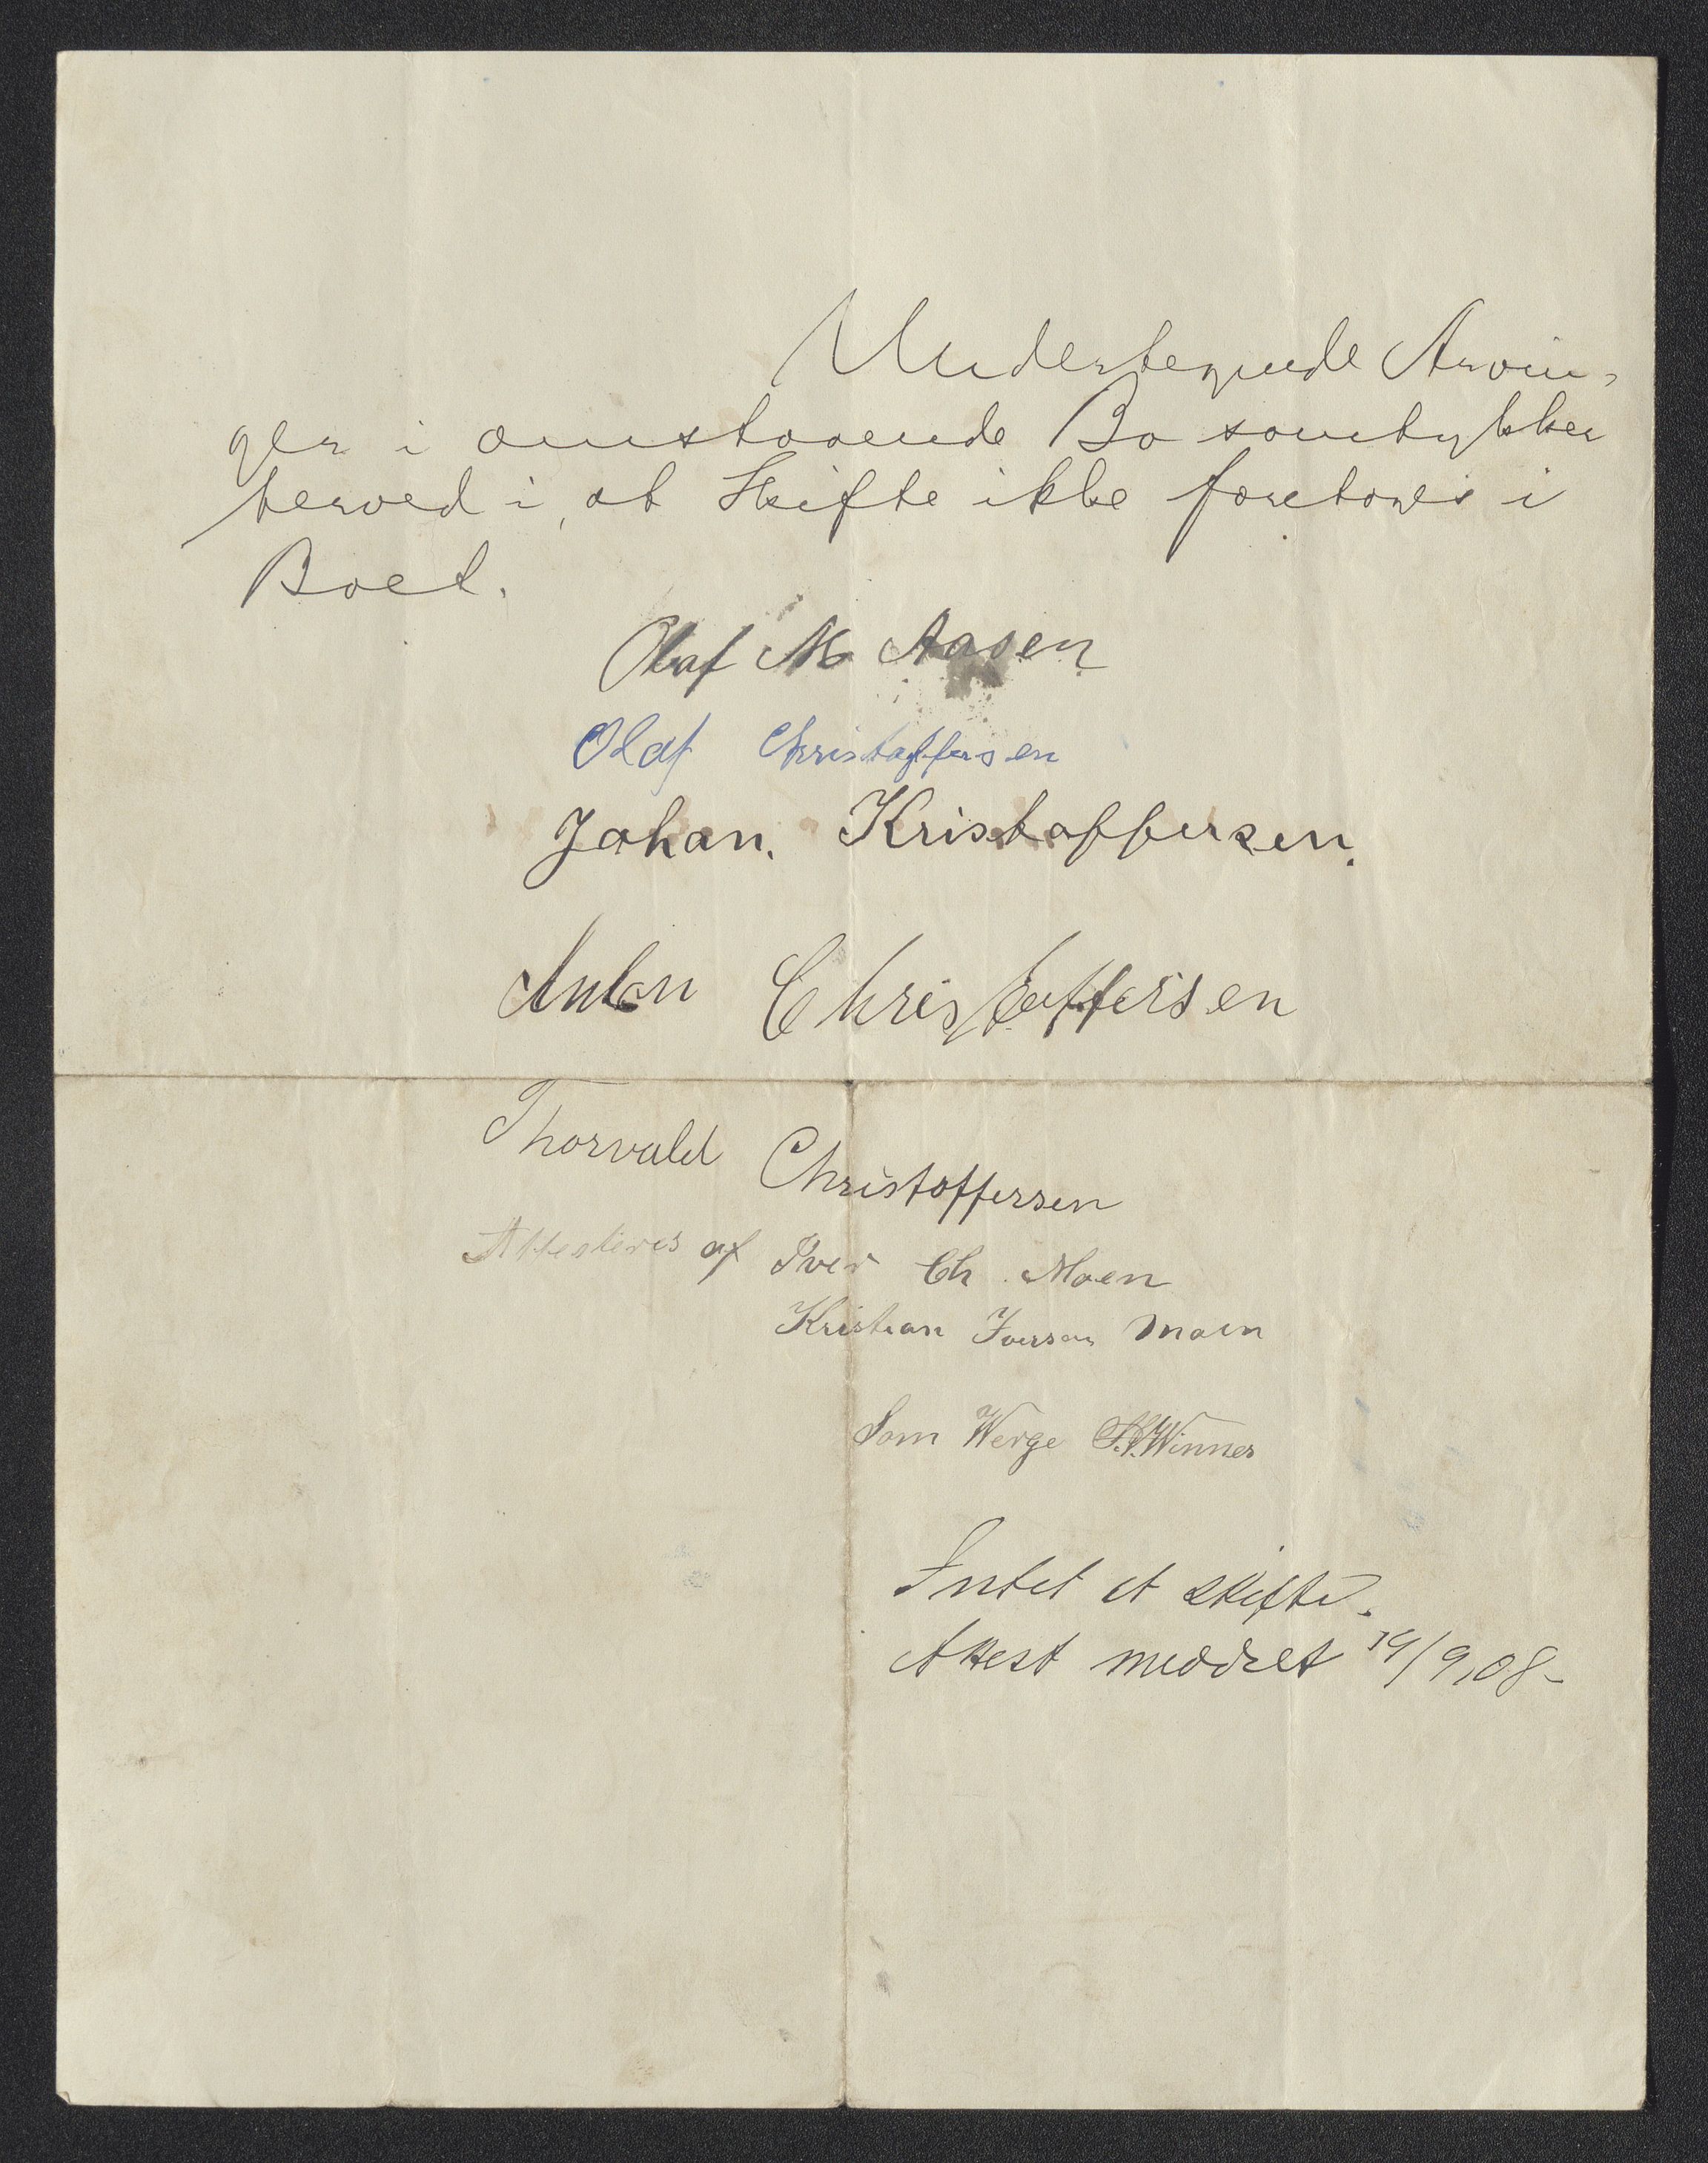 Undertegnede Arvin-
ger i omstaaende Bo samtykker
herved i, at Skifte ikke foretages i
Boet.
Olaf M Aasen
Olaf Christoffersen
Johan. Kristoffersen.
Anton Christoffersen
Thorvald Christoffersen
Attesteres af Iver Ch. Moen
Kristian Iversen Moen
Som Werge Winner
Intet at skifte.
Attest meddelt 14/9, 08-